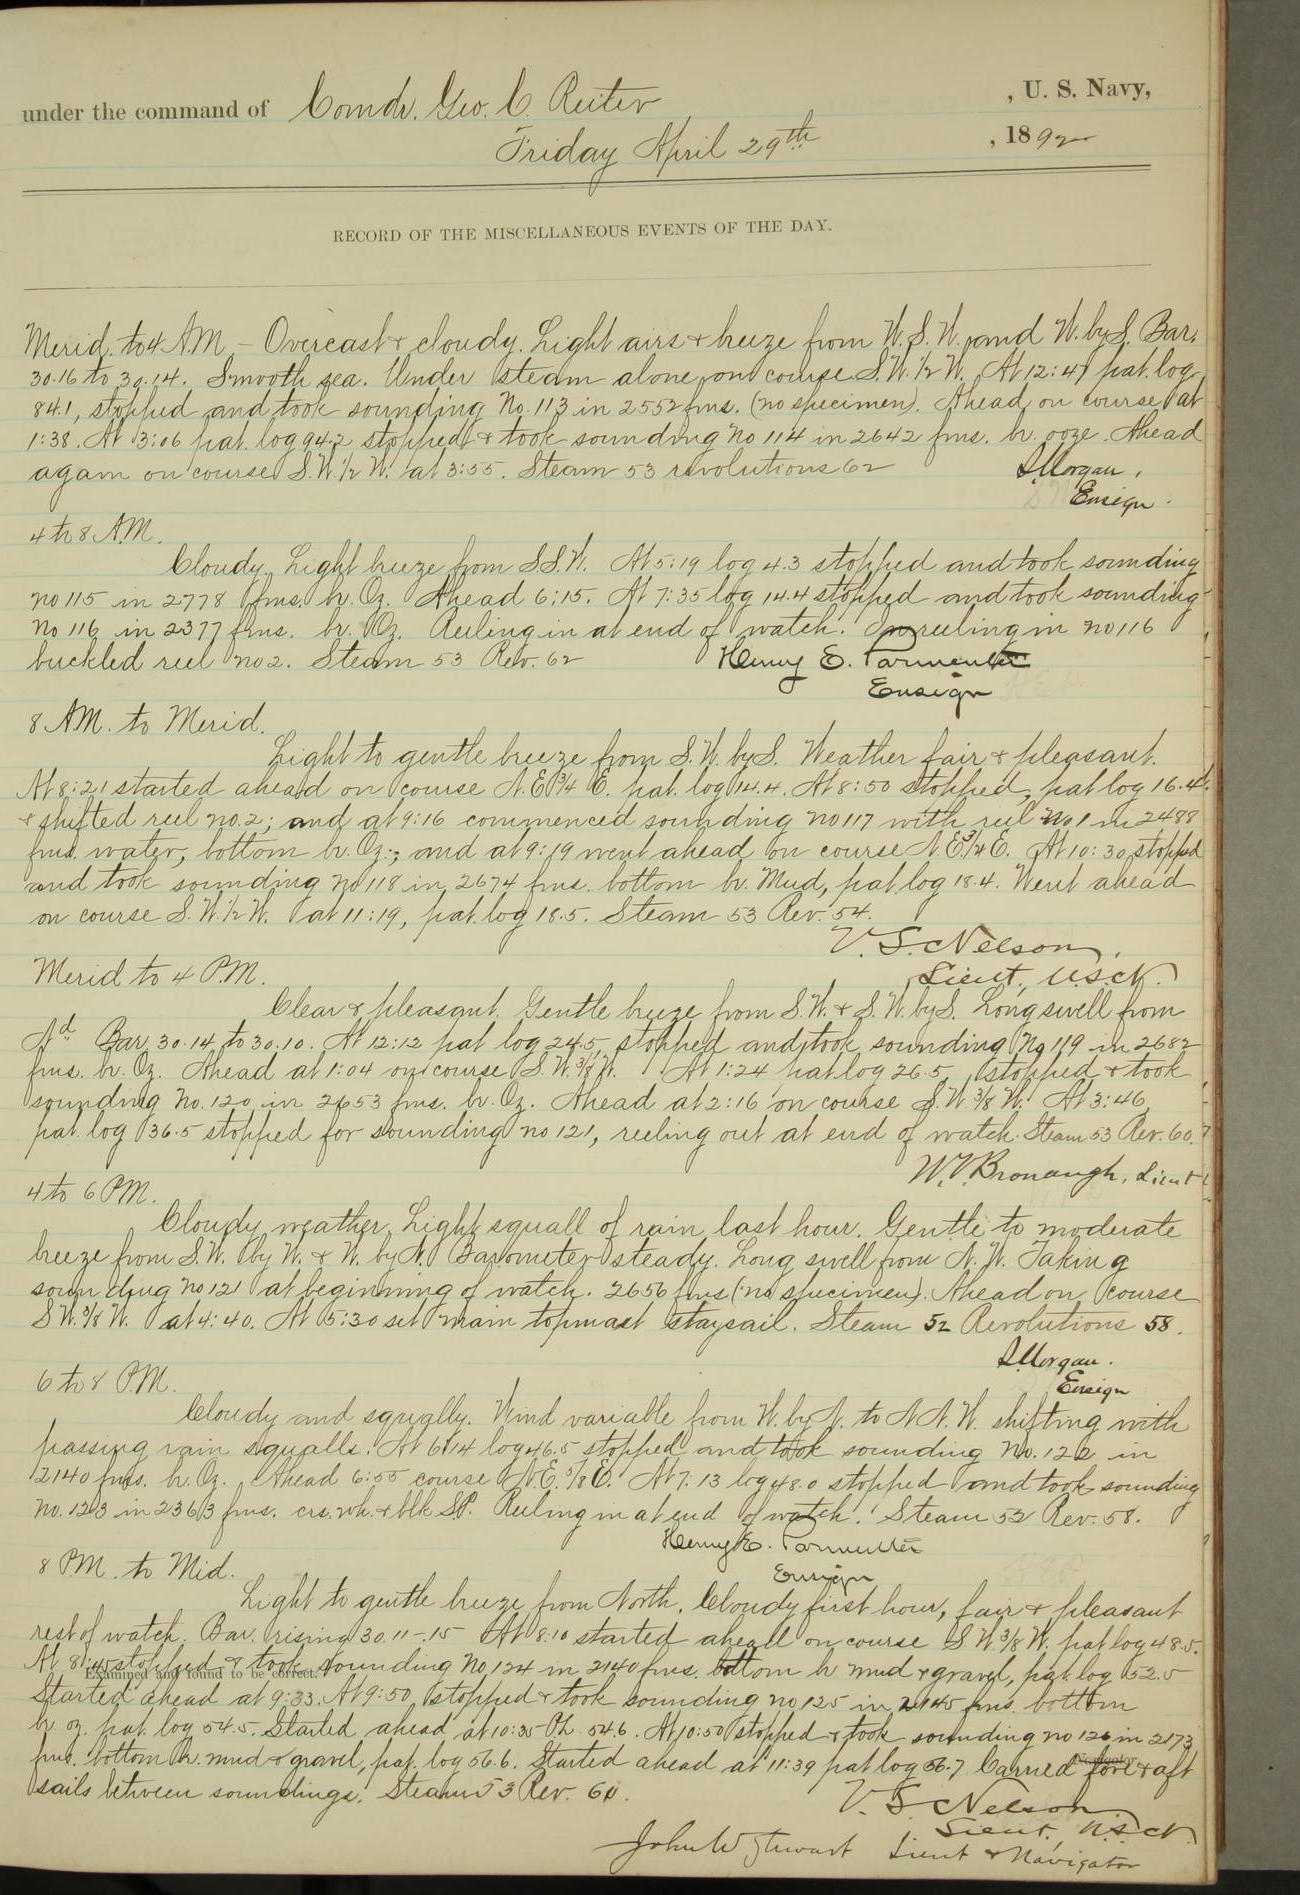 under the command of Comdr. Geo. C. Reiter , U. S. Navy,
Friday April 29th , 1892
RECORD OF THE MISCELLANEOUS EVENTS OF THE DAY.
Merid. to 4 A.M. – Overcast & cloudy. Light airs & breeze from W.S.W. and W. by S. Bar.
30.16 to 30.14. Smooth sea. Under steam alone, on course S.W. 1/2 W. At 12:47 pat. log
84.1, stopped and took sounding No. 113 in 2552 fms. (no specimen). Ahead on course at
1:38. At 3:06 pat. log 94.2 stopped & took sounding No 114 in 2642 fms. br. ooze. Ahead
again on course S.W. 1/2 W. at 3:55. Steam 53 revolutions 62
S. Morgan,
Ensign.
4 to 8 A.M.
Cloudy. Light breeze from S.S.W. At 5:19 log 4.3 stopped and took sounding
No 115 in 2778 fms. br. Oz. Ahead 6:15. At 7:35 log 14.4 stopped and took sounding
No 116 in 2377 fms. br. Oz. Reeling in at end of watch. In reeling in No 116
buckled reel No 2. Steam 53 Rev. 62 Henry E. Parmenter
Ensign
8 A.M. to Merid.
Light to gentle breeze from S.W. by S. Weather fair & pleasant.
At 8:21 started ahead on course N.E. 3/4 E. pat. log 14.4. At 8:50 stopped, pat log 16.4.
& shifted reel No. 2; and at 9:16 commenced sounding No 117 with reel No 1 in 2488
fms. water, bottom br. Oz.; and at 9:19 went ahead on course N.E. 3/4 E. At 10:30 stopped
and took sounding No 118 in 2674 fms. bottom br. Mud, pat log 18.4. Went ahead
on course S.W. 1/2 W. at 11:19, pat. log 18.5. Steam 53 Rev. 54.
V. S. Nelson,
Lieut., U.S.N.
Merid to 4 P.M.
Clear & pleasant. Gentle breeze from S.W. & S.W. by S. Long swell from
Nd. Bar. 30.14 to 30.10. At 12:12 pat log 24.5, stopped and took sounding No 119 in 2682
fms. br. Oz. Ahead at 1:04 on course S.W. 3/8 W. At 1:24 pat log 26.5 stopped & took
sounding No. 120 in 2653 fms. br. Oz. Ahead at 2:16 on course S.W. 3/8 W. At 3:46,
pat. log 36.5 stopped for sounding No 121, reeling out at end of watch. Steam 53 Rev. 60.
W.V. Bronaugh, Lieut
4 to 6 P.M.
Cloudy weather. Light squall of rain last hour. Gentle to moderate
breeze from S.W. by W. & W. by N. Barometer steady. Long swell from N.W. Taking
sounding No 121 at beginning of watch. 2656 fms (no specimen). Ahead on course
S.W. 3/8 W. at 4:40. At 5:30 set main topmast staysail. Steam 52 Revolutions 58.
S. Morgan.
Ensign
6 to 8 P.M.
Cloudy and squally. Wind variable from W. by N. to N.N.W. shifting with
passing rain squalls. At 6:14 log 46.5 stopped and took sounding No. 122 in
2140 fms. br. Oz. Ahead 6:55 course N.E. 3/8 E. At 7:13 log 48.0 stopped and took sounding
No. 123 in 2363 fms. crs. wh. & blk Sp. Reeling in at end of watch. Steam 52 Rev. 58.
Henry E. Parmenter
Ensign
8 P.M. to Mid.
Light to gentle breeze from North. Cloudy first hour, fair & pleasant
rest of watch. Bar. rising 30.11 -.15 At 8.10 started ahead on course S.W. 3/8 W. pat log 48.5.
At 8:45 stopped & took sounding No. 124 in 2140 fms. bottom br mud & gravel, pat. log 52.5
Examined and found to be correct.
Started ahead at 9:33. At 9:50 stopped & took sounding No 125 in 2145 fms. bottom
br oz. pat. log 54.5. Started ahead at 10:35 P.L. 54.6. At 10:50 stopped & took sounding No 126 in 2173
fms. bottom br. mud & gravel, pat. log 56.6. Started ahead at 11:39 pat log 56.7 Carried fore & aft
Navigator.
sails between soundings. Steam 53 Rev. 60.
V. S. Nelson
Lieut., U.S.N.
John W Stewart Lieut & Navigator